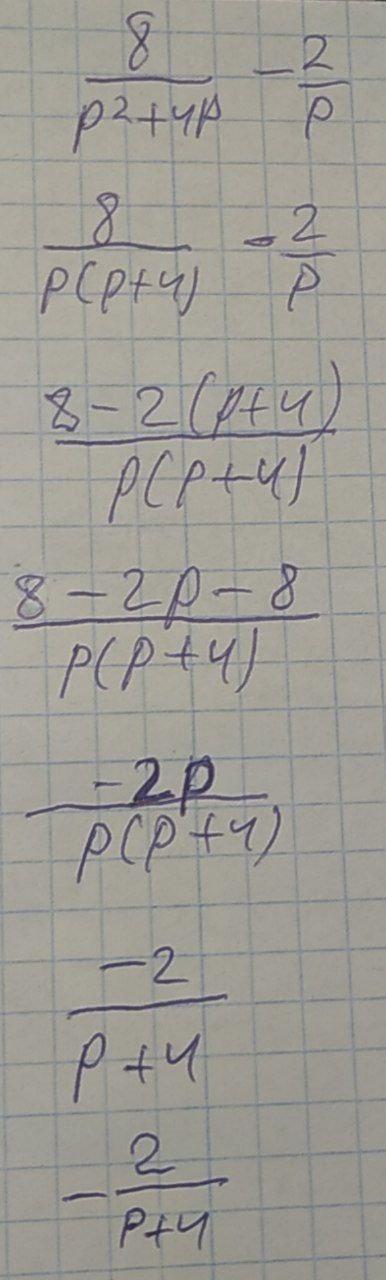 8/(p²+4p) - 2/p
8/(p(p+4)) - 2/p
(8-2(p+4))/(p(p+4))
(8-2p-8)/(p(p+4))
(-2p)/(p(p+4))
(-2)/(p+4)
-2/(p+4)